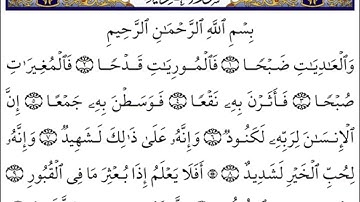 بِسْمِ ٱللَّهِ ٱلرَّحْمَٰنِ ٱلرَّحِيمِ
وَٱلْعَٰدِيَٰتِ ضَبْحًا ۝١ فَٱلْمُورِيَٰتِ قَدْحًا ۝٢ فَٱلْمُغِيرَٰتِ
صُبْحًا ۝٣ فَأَثَرْنَ بِهِۦ نَقْعًا ۝٤ فَوَسَطْنَ بِهِۦ جَمْعًا ۝٥ إِنَّ
ٱلْإِنسَٰنَ لِرَبِّهِۦ لَكَنُودٌ ۝٦ وَإِنَّهُۥ عَلَىٰ ذَٰلِكَ لَشَهِيدٌ ۝٧ وَإِنَّهُۥ
لِحُبِّ ٱلْخَيْرِ لَشَدِيدٌ ۝٨ ۞ أَفَلَا يَعْلَمُ إِذَا بُعْثِرَ مَا فِى ٱلْقُبُورِ ۝٩